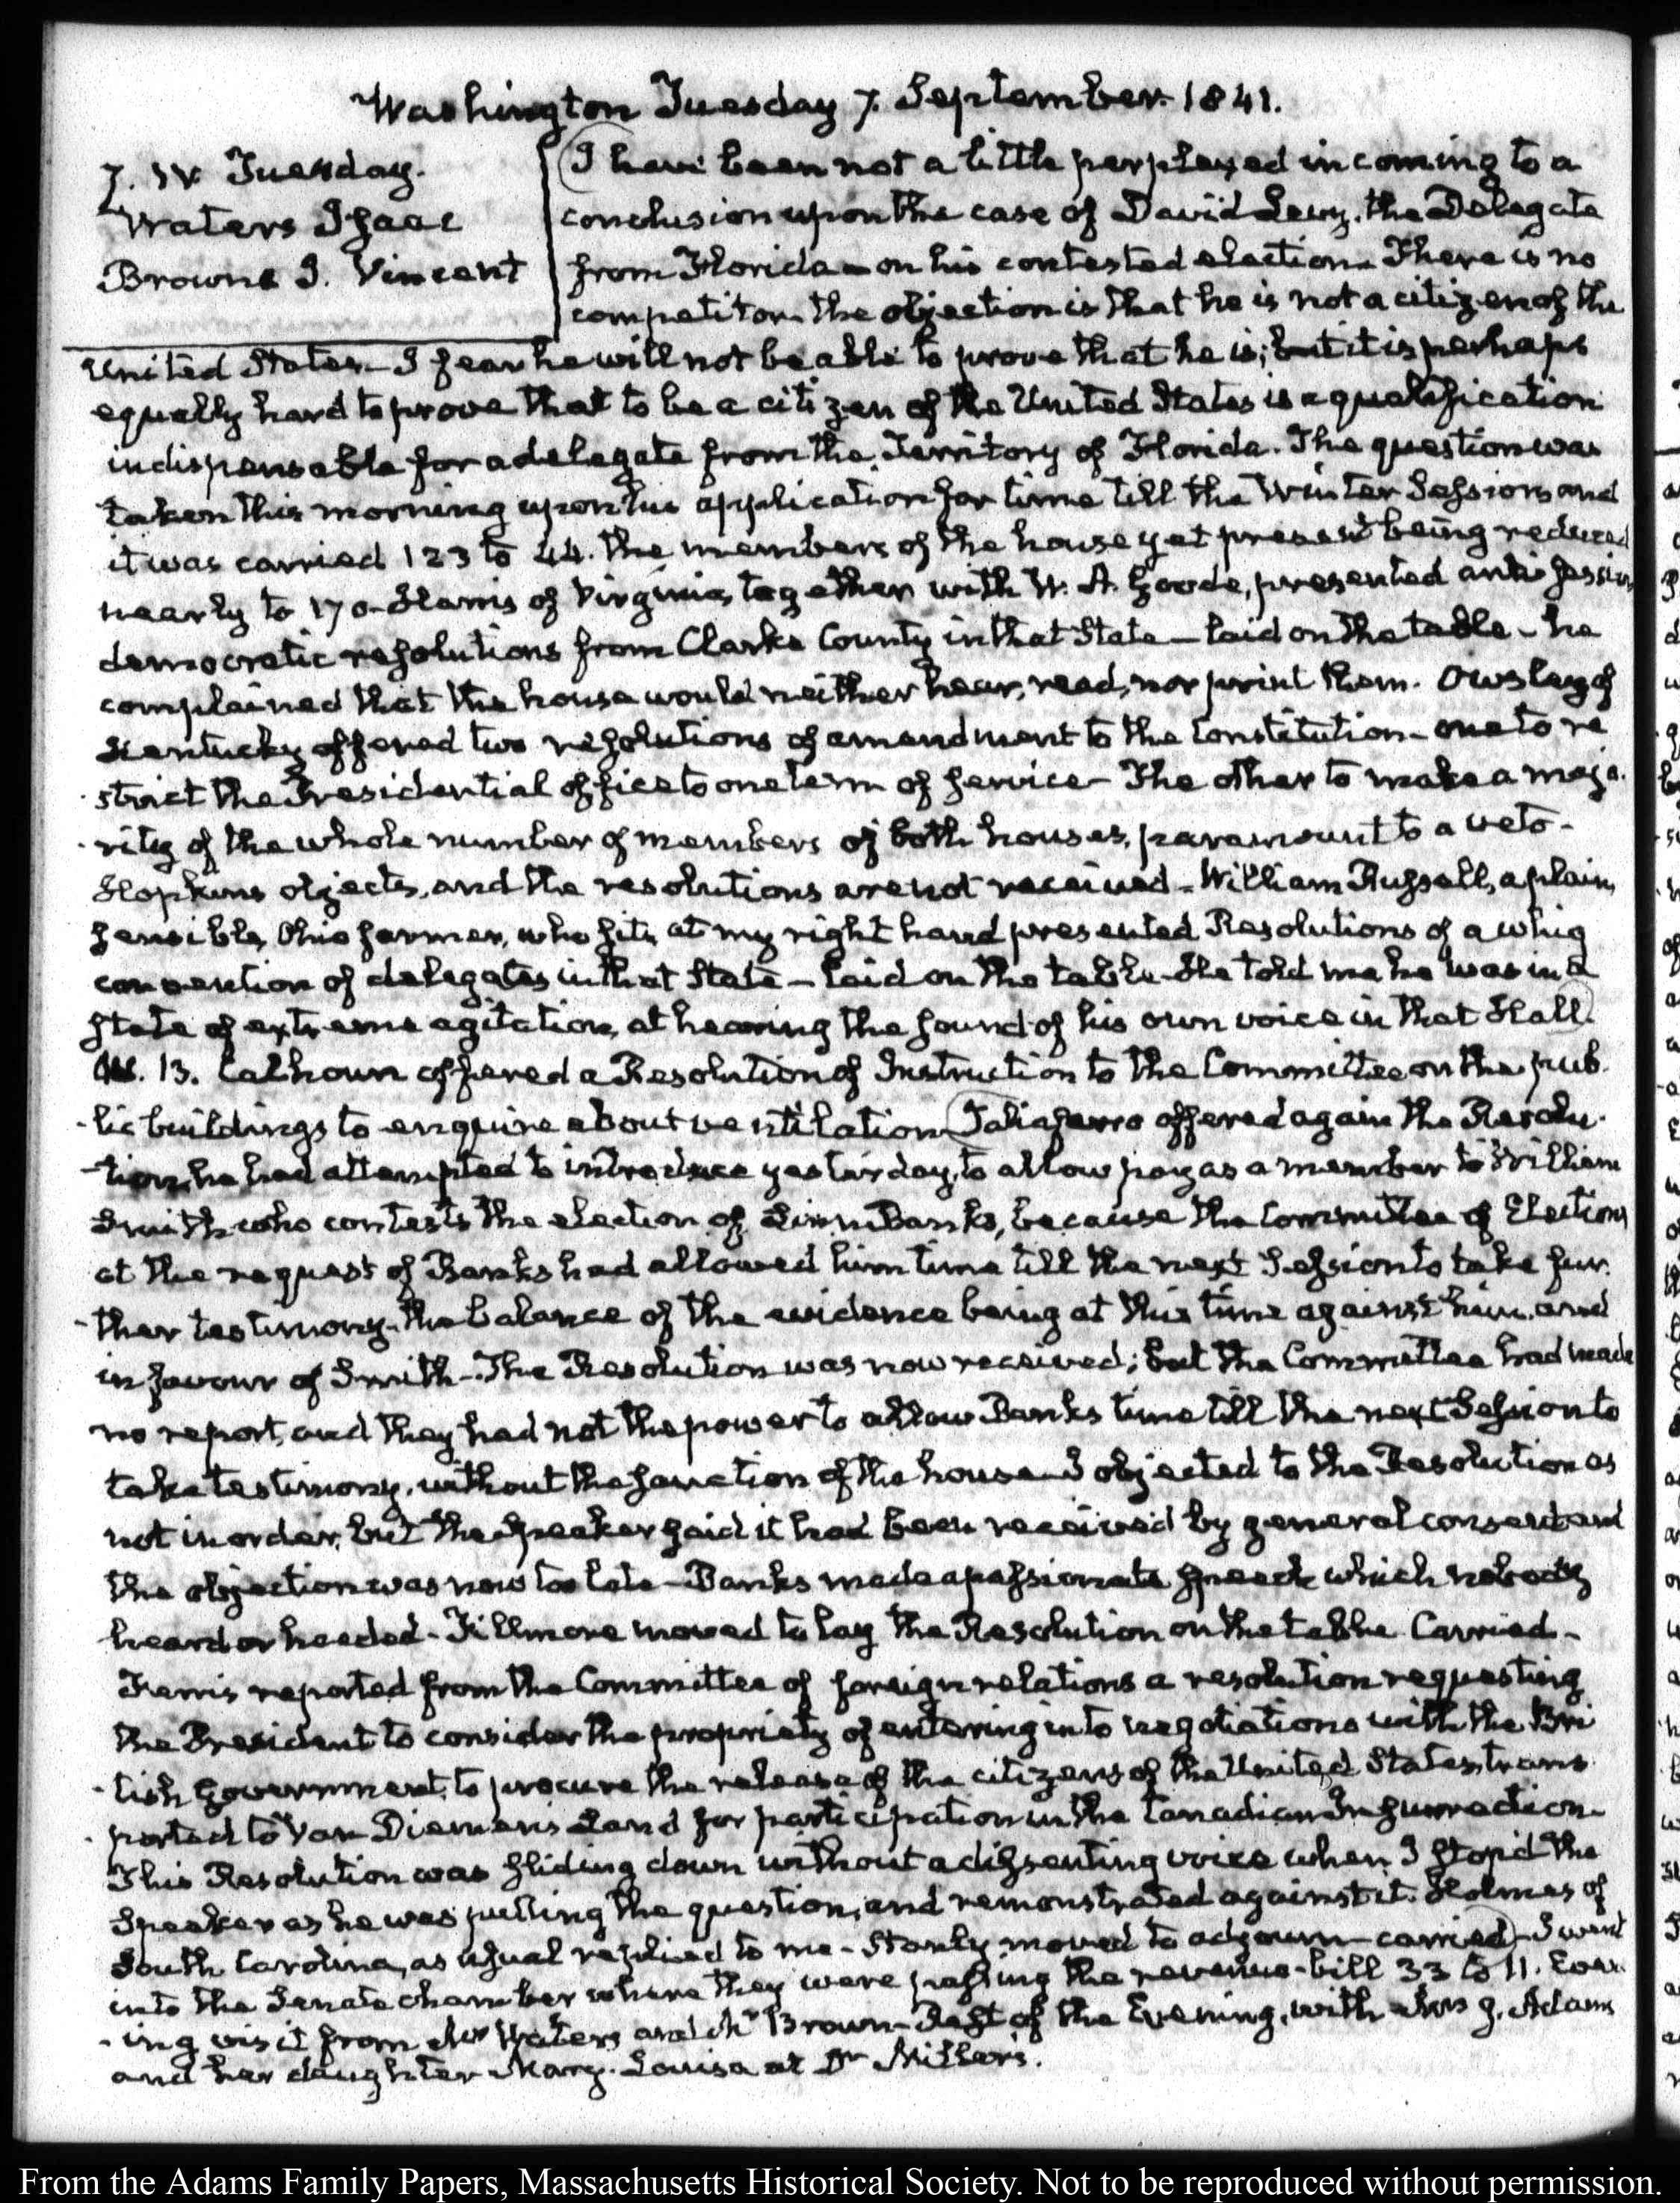 Washington Tuesday 7. September 1841.
7. IV. Tuesday.
Waters Isaac
Browne J. Vincent
I have been not a little perplexed in coming to a
conclusion upon the case of David Levy, the Delegate
from Florida - on his contested election. There is no
competitor. the objection is that he is not a citizen of the
United States - I fear he will not be able to prove that he is; but it is perhaps
equally hard to prove that to be a citizen of the United States is a qualification
indispensable for a delegate from the Territory of Florida. The question was
taken this morning upon his application for time till the Winter Session, and
it was carried 123 to 44. The members of the house yet present being reduced
nearly to 170 - Harris of Virginia, together with W. A. Goode, presented anti-session
democratic resolutions from Clarke County in that State - laid on the table - he
complained that the house would neither hear, read, nor print them. Owsley of
Kentucky offered two resolutions of amendment to the Constitution - one to re
strict the Presidential office to one term of service - The other to make a majo-
-rity of the whole number of members of both houses, paramount to a veto -
Hopkins objects, and the resolutions are not received - William Russell, a plain,
sensible, Ohio farmer, who sits at my right hand presented Resolutions of a whig
convention of delegates in that State - laid on the table - He told me he was in a
state of extreme agitation, at hearing the sound of his own voice in that Hall.
W. B. Calhoun offered a Resolution of Instruction to the Committee on the pub-
-lic buildings to enquire about ventilation. Taliaferro offered again the Resolu-
-tion, he had attempted to introduce yesterday, to allow pay as a member to William
Smith who contests the election of Linn Banks, because the Committee of Elections
at the request of Banks had allowed him time till the next Session to take fur-
-ther testimony. the balance of the evidence being at this time against him, and
in favour of Smith - The Resolution was now received; but the Committee had made
no report, and they had not the power to allow Banks time till the next Session to
take testimony, without the sanction of the house - I objected to the Resolution as
not in order, but the Speaker said it had been received by general consent and
the objection was now too late - Banks made a passionate speech which nobody
heard or heeded - Fillmore moved to lay the Resolution on the table - Carried -
Ferris reported from the Committee of foreign relations a resolution requesting
the President to consider the propriety of entering into negotiations with the Bri
-tish Government, to procure the release of the citizens of the United States, trans
-ported to Van Diemen's Land for participation in the Canadian Insurrection -
This Resolution was sliding down without a dissenting voice when I stop'd the
Speaker as he was putting the question, and remonstrated against it. Holmes of
South Carolina, as usual replied to me - Stanly moved to adjourn - carried - I went
into the Senate chamber where they were passing the revenue-bill 33 to 11. Even-
-ing visit from Mr Waters and Mr Brown - Rest of the Evening, with Mrs J. Adams
and her daughter Mary-Louisa at Dr Miller's.
From the Adams Family Papers, Massachusetts Historical Society. Not to be reproduced without permission.